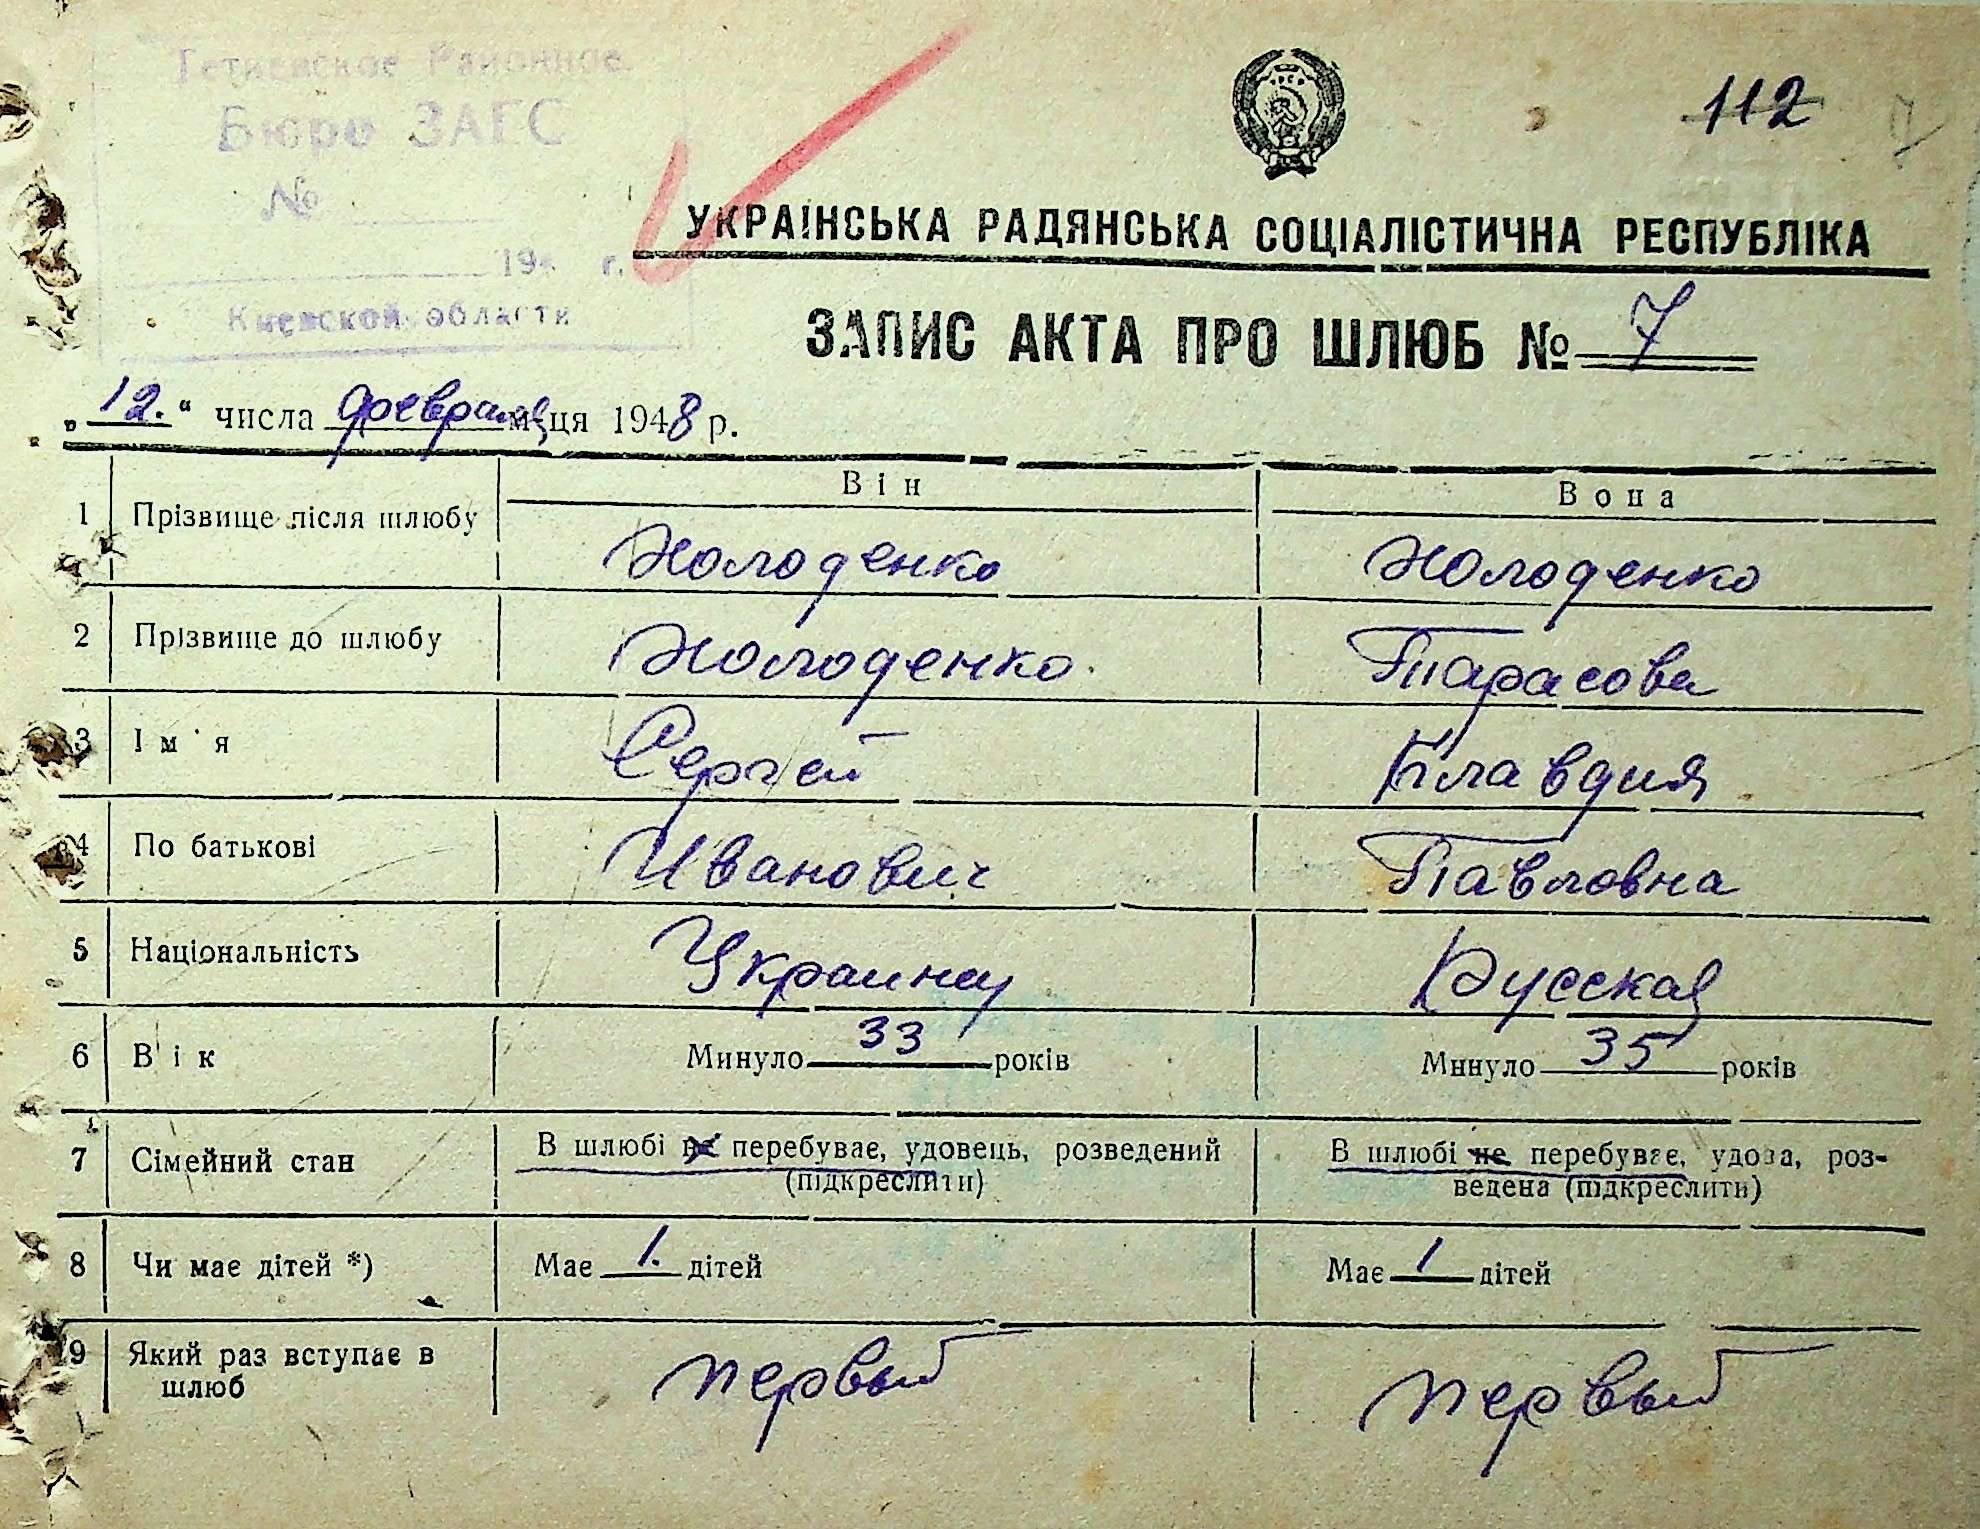 Тетиевское Районное
Бюро ЗАГС
№
194 г.
Киевской области
112
УКРАЇНСЬКА РАДЯНСЬКА СОЦІАЛІСТИЧНА РЕСПУБЛІКА
ЗАПИС АКТА ПРО ШЛЮБ № 7
„12.“ числа февраля м-ця 1948 р.
Він Вона
1 Прізвище після шлюбу Холоденко Холоденко
2 Прізвище до шлюбу Холоденко. Тарасова
3 Ім'я Сергей Клавдия
4 По батькові Иванович Павловна
5 Національність Украинец Русская
6 Вік Минуло 33 років Минуло 35 років
7 Сімейний стан В шлюбі не перебуває, удовець, розведений (підкреслити) В шлюбі не перебуває, удова, роз-
ведена (підкреслити)
8 Чи має дітей *) Має 1. дітей Має 1 дітей
9 Який раз вступає в
шлюб первый первый